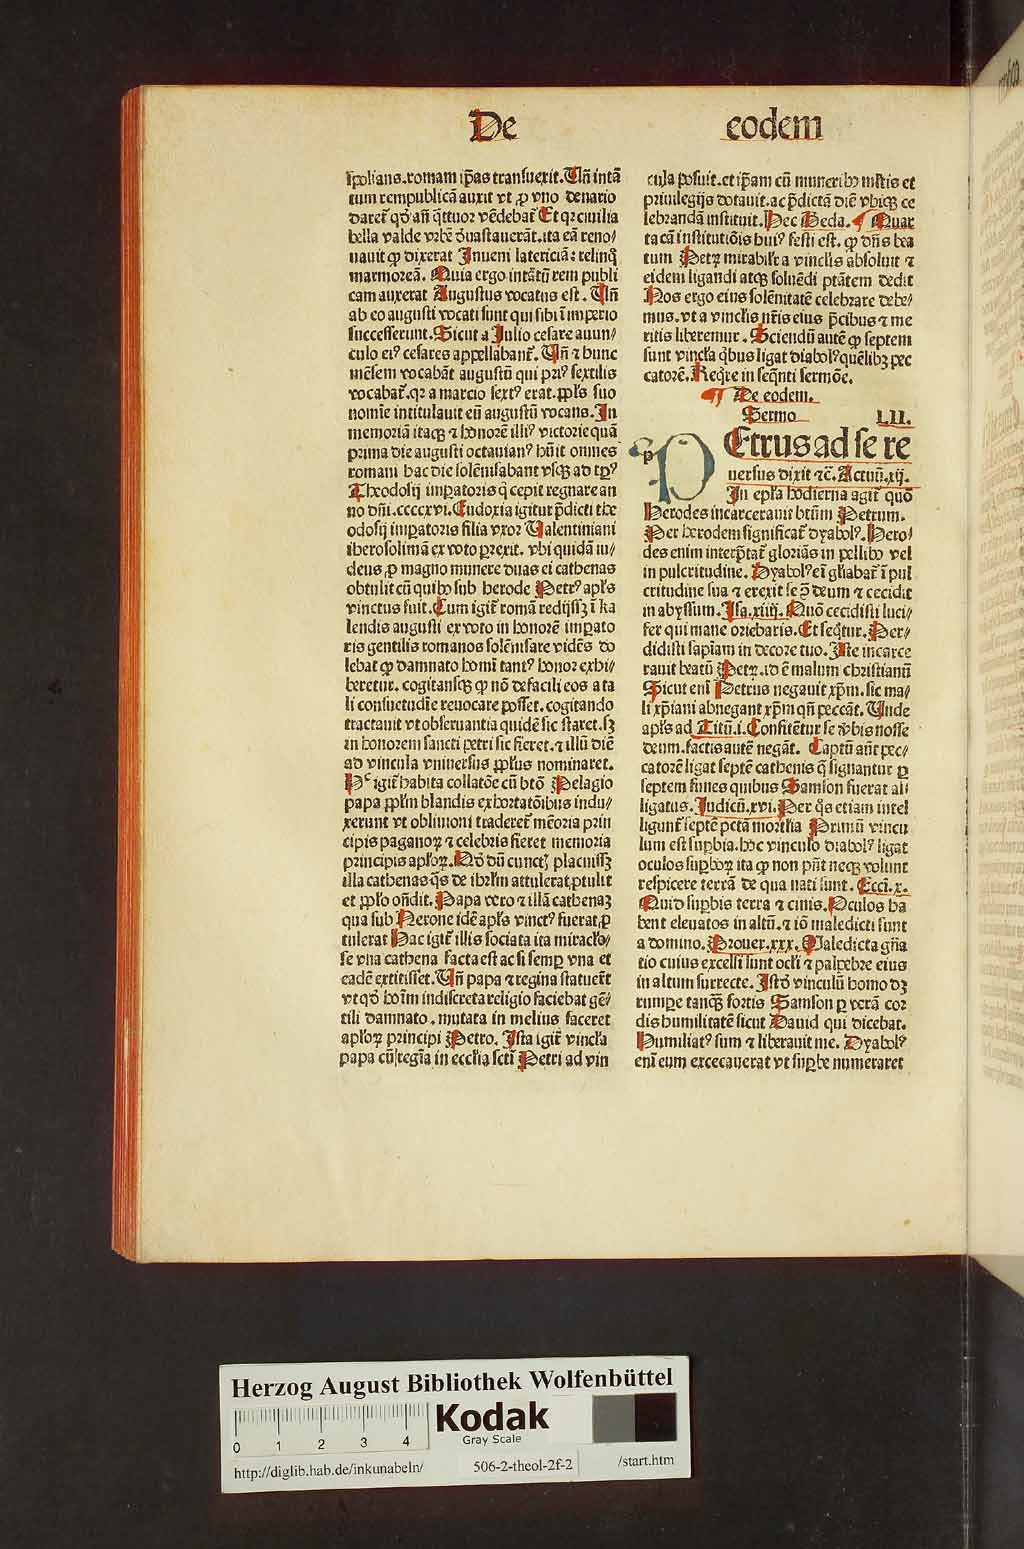 De eodem
spolians.romam ip̄as transuexit.Un̄ intā
tum rempublicā auxit vt ꝓ vno denario
daret᷑ qd̓ an̄ q̈ttuor vēdebat᷑ Et qꝛ ciuilia
bella valde vrbē d̓uastauerāt.ita eā reno⸗
uauit ꝙ dixerat Inueni latericiā: relinq̄
marmoreā. Quia ergo intātū rem publi
cam auxerat Augustus vocatus est. Un̄
ab eo augusti vocati sunt qui sibi ī imperio
successerunt.Sicut a Julio cesare auun⸗
culo eiꝰ cesares appellabant᷑. Un̄ ⁊ hunc
mēsem vocabāt augustū qui priꝰ sextilis
vocabat᷑.qꝛ a marcio sextꝰ erat.ꝓp̄ls suo
nomīe intitulauit eū augustū vocans.In
memoriā itaqꝫ ⁊ honorē illiꝰ victorie quā
prima die augusti octauianꝰ hūit omnes
romani hac die solēnisabant vsqꝫ ad tp̄ꝰ
Theodosij imꝑatoris q̇ cepit regnare an
no dn̄i.ccccxvi.Eudoxia igitur p̄dicti the
odosij imꝑatoris filia vxor Ualentiniani
iherosolimā ex voto ꝑrexit. vbi quidā iu⸗
deus ꝓ magno munere duas ei cathenas
obtulit cū quibꝰ sub herode Petrꝰ apl̄s
vinctus fuit.Cum igit᷑ romā redijssꝫ ī ka
lendis augusti ex voto in honorē imꝑato
ris gentilis romanos solēnisare vidēs do
lebat ꝙ damnato homī tantꝰ honor exhi⸗
beretur. cogitansqꝫ ꝙ nō de facili eos a ta
li cōsuetudīe reuocare posset.cogitando
tractauit vt obseruantia quidē sic staret.sꝫ
in honorem sancti petri sic fieret.⁊ illū diē
ad vincula vniuersus ꝓpl̄us nominaret.
igit᷑ habita collatōe cū btō Pelagio
papa ꝓpl̄m blandis exhortatōibus indu⸗
xerunt vt obliuioni traderet᷑ mēoria prin
cipis paganoꝝ ⁊ celebris fieret memoria
principis apl̄oꝝ. Qd̓ dū cunctꝭ placuissꝫ
illa cathenas q̈s de ihrl̄m attulerat.ꝓtulit
et ꝓpl̄o on̄dit.Papa vero ⁊ illā cathenaꝫ
qua sub Nerone idē apl̄s vinctꝰ fuerat.ꝓ
tulerat Hac igit᷑ illis sociata ita miracl̓o⸗
se vna cathena facta est ac si semꝑ vna et
eadē extitisset.Un̄ papa ⁊ regina statuer̄t
vt qd̓ hoīm indiscreta religio faciebat gē⸗
tili damnato.mutata in melius faceret
apl̄oꝝ principi Petro. Ista igit᷑ vincl̓a
papa cū regīa in eccl̓ia sctī Petri ad vin
cula posuit.et ip̄am cū muneribꝰ mltis et
priuilegijs dotauit.ac p̄dictā diē vbiqꝫ ce
lebrandā instituit.Hec Beda. ¶ Quar
ta cā institutiōis huiꝰ festi est. ꝙ dn̄s bea
tum Petꝝ mirabilr̄ a vinclis absoluit ⁊
eidem ligandi atqꝫ soluēdi ptātem dedit
Nos ergo eius solēnitatē celebrare debe⸗
mus.vt a vinclis nr̄is eius p̄cibus ⁊ me
ritis liberemur. Sciendū autē ꝙ septem
sunt vincl̓a q̇bus ligat diabolꝰ quēlibꝫ pec
catorē.Req̇re in seq̄nti sermōe.
¶ De eodem.
Sermo LII.
p PEtrus ad se re
uersus dixit ⁊c̄.Actuū.xij.
In epl̄a hodierna agit᷑ quō
Herodes incarcerauit btūm Petrum.
Per herodem significat᷑ dyabolꝰ.Hero⸗
des enim interp̄tat᷑ glorians in pellibꝰ vel
in pulcritudine. Dyabolꝰ eī gl̓iabat᷑ ī pul
critudine sua ⁊ erexit se ꝯ deum ⁊ cecidit
in abyssum.Isa.xiiij. Quō cecidisti luci⸗
fer qui mane oriebaris.Et seq̇tur.Per⸗
didisti sapīam in decore tuo.Iste incarce
rauit beatū Petꝝ.id ē malum christianū
Sicut eni Petrus negauit xp̄m.sic ma⸗
li xp̄iani abnegant xp̄m qn̄ peccāt. Unde
apl̄s ad Titū.i.Confitētur se v̓bis nosse
deum.factis autē negāt. Captū aūt pec⸗
catorē ligat septē cathenis q̄ signantur ꝑ
septem funes quibus Samson fuerat al⸗
ligatus.Judicū.xvi.Per q̈s etiam intel
ligunt᷑ septē pctā mortl̓ia Primū vincu
lum est suꝑbia.hoc vinculo diabolꝰ ligat
oculos suꝑboꝝ ita ꝙ non pn̄t neqꝫ volunt
respicere terrā de qua nati sunt. Eccī.x.
Quid suꝑbis terra ⁊ cinis.Oculos ha
bent eleuatos in altū.⁊ iō maledicti sunt
a domino.Prouer.xxx. Maledicta gn̄a
tio cuius excelsi sunt ocl̓i ⁊ palpebre eius
in altum surrecte. Istd̓ vinculū homo dꝫ
rumpe tanqꝫ fortis Samson ꝑ verā cor
dis humilitatē sicut Dauid qui dicebat.
Humiliatꝰ sum ⁊ liberauit me. Dyabolꝰ
enī eum excecauerat vt suꝑbe numeraret
Herzog August Bibliothek Wolfenbüttel
0 1 2 3 4
Kodak
Gray Scale
http://diglib.hab.de/inkunabeln/ 506-2-theol-2f-2 /start.htm